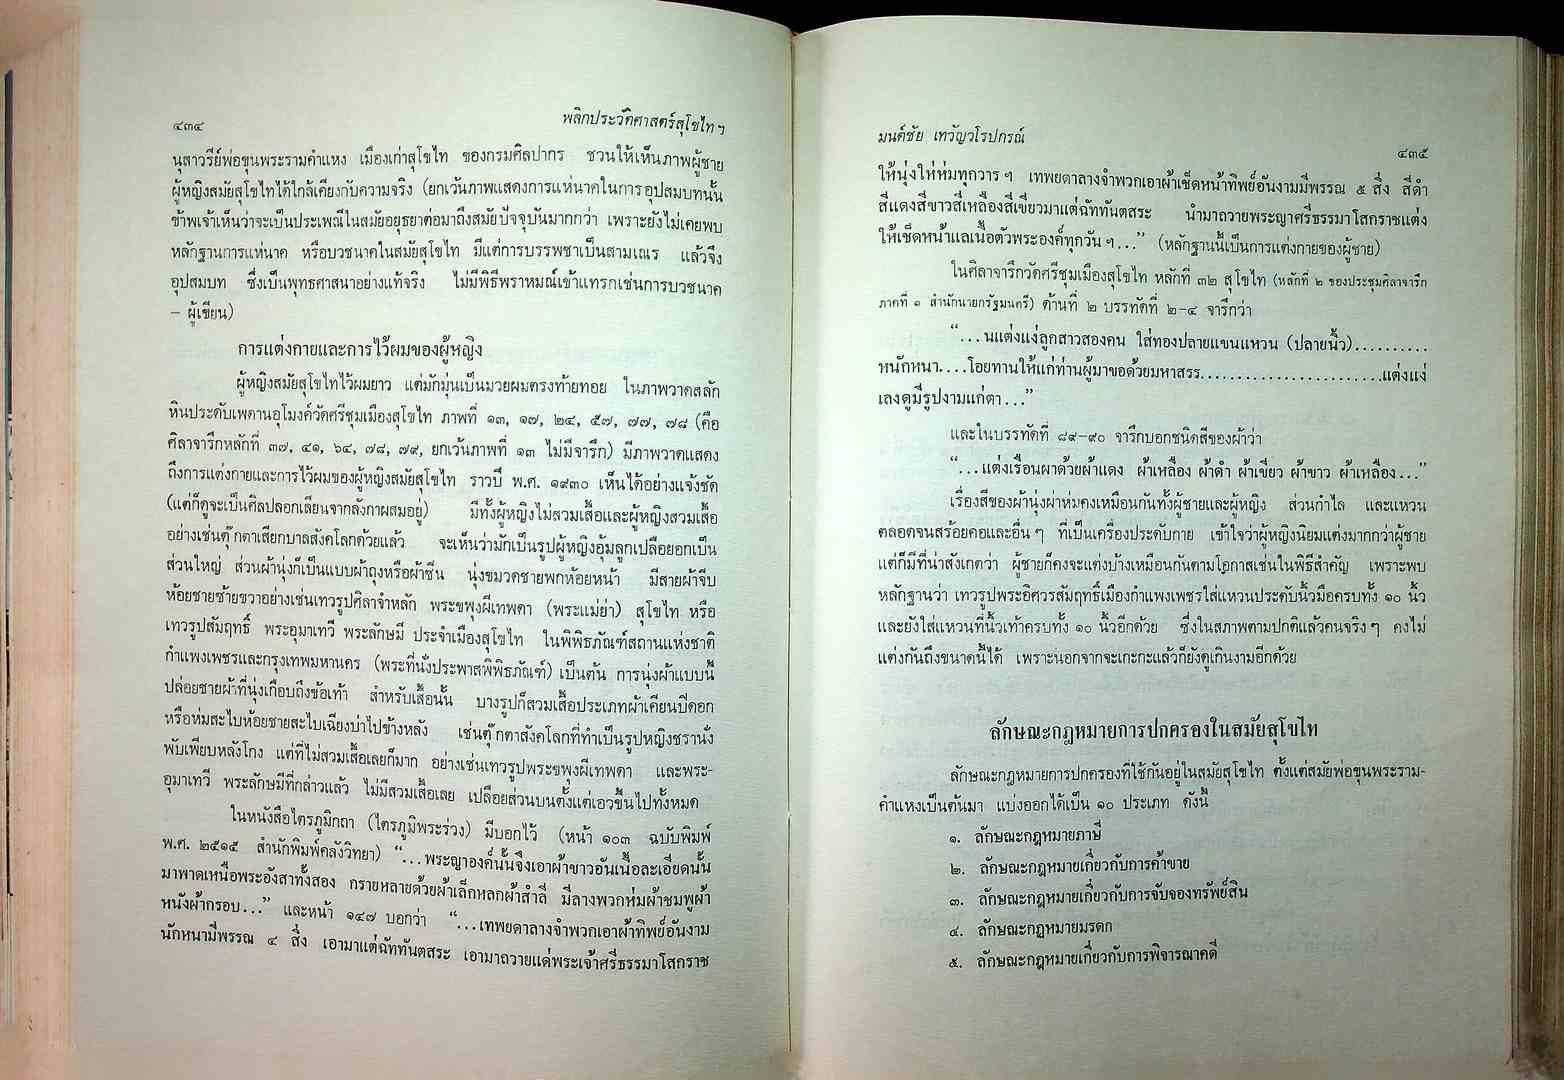 ๔๓๔ พลิกประวัติศาสตร์สุโขไทฯ
นุสาวรีย์พ่อขุนพระรามคำแหง เมืองเก่าสุโขไท ของกรมศิลปากร ชวนให้เห็นภาพผู้ชาย
ผู้หญิงสมัยสุโขไทได้ใกล้เคียงกับความจริง (ยกเว้นภาพแสดงการแห่นาคในการอุปสมบทนั้น
ข้าพเจ้าเห็นว่าจะเป็นประเพณีในสมัยอยุธยาต่อมาถึงสมัยปัจจุบันมากกว่า เพราะยังไม่เคยพบ
หลักฐานการแห่นาค หรือบวชนาคในสมัยสุโขไท มีแต่การบรรพชาเป็นสามเณร แล้วจึง
อุปสมบท ซึ่งเป็นพุทธศาสนาอย่างแท้จริง ไม่มีพิธีพราหมณ์เข้าแทรกเช่นการบวชนาค
– ผู้เขียน)
การแต่งกายและการไว้ผมของผู้หญิง
ผู้หญิงสมัยสุโขไทไว้ผมยาว แต่มักมุ่นเป็นมวยผมตรงท้ายทอย ในภาพวาดสลัก
หินประดับเพดานอุโมงค์วัดศรีชุมเมืองสุโขไท ภาพที่ ๑๓, ๑๗, ๒๔, ๕๗, ๗๗, ๗๘ (คือ
ศิลาจารึกหลักที่ ๓๗, ๔๑, ๖๔, ๗๘, ๗๙, ยกเว้นภาพที่ ๑๓ ไม่มีจารึก) มีภาพวาดแสดง
ถึงการแต่งกายและการไว้ผมของผู้หญิงสมัยสุโขไท ราวปี พ.ศ. ๑๙๓๐ เห็นได้อย่างแจ้งชัด
(แต่ก็ดูจะเป็นศิลปลอกเลียนจากลังกาผสมอยู่) มีทั้งผู้หญิงไม่สวมเสื้อและผู้หญิงสวมเสื้อ
อย่างเช่นตุ๊กตาเสียกบาลสังคโลกด้วยแล้ว จะเห็นว่ามักเป็นรูปผู้หญิงอุ้มลูกเปลือยอกเป็น
ส่วนใหญ่ ส่วนผ้านุ่งก็เป็นแบบผ้าถุงหรือผ้าซิ่น นุ่งขมวดชายพกห้อยหน้า มีสายผ้าจีบ
ห้อยชายซ้ายขวาอย่างเช่นเทวรูปศิลาจำหลัก พระขพุงผีเทพดา (พระแม่ย่า) สุโขไท หรือ
เทวรูปสัมฤทธิ์ พระอุมาเทวี พระลักษมี ประจำเมืองสุโขไท ในพิพิธภัณฑ์สถานแห่งชาติ
กำแพงเพชรและกรุงเทพมหานคร (พระที่นั่งประพาสพิพิธภัณฑ์) เป็นต้น การนุ่งผ้าแบบนี้
ปล่อยชายผ้าที่นุ่งเกือบถึงข้อเท้า สำหรับเสื้อนั้น บางรูปก็สวมเสื้อประเภทผ้าเคียนปีดอก
หรือห่มสะไบห้อยชายสะไบเฉียงบ่าไปข้างหลัง เช่นตุ๊กตาสังคโลกที่ทำเป็นรูปหญิงชรานั่ง
พับเพียบหลังโกง แต่ที่ไม่สวมเสื้อเลยก็มาก อย่างเช่นเทวรูปพระขพุงผีเทพดา และพระ-
อุมาเทวี พระลักษมีที่กล่าวแล้ว ไม่มีสวมเสื้อเลย เปลือยส่วนบนตั้งแต่เอวขึ้นไปทั้งหมด
ในหนังสือไตรภูมิกถา (ไตรภูมิพระร่วง) มีบอกไว้ (หน้า ๑๐๓ ฉบับพิมพ์
พ.ศ. ๒๕๑๕ สำนักพิมพ์คลังวิทยา) “...พระญาองค์นั้นจึงเอาผ้าขาวอันเนื้อละเอียดนั้น
มาพาดเหนือพระอังสาทั้งสอง กรายหลายด้วยผ้าเล็กหลกผ้าสำลี มีลางพวกห่มผ้าชมพูผ้า
หนังผ้ากรอบ...” และหน้า ๑๔๗ บอกว่า “...เทพยดาลางจำพวกเอาผ้าทิพย์อันงาม
นักหนามีพรรณ ๔ สิ่ง เอามาแต่ฉัททันตสระ เอามาถวายแด่พระเจ้าศรีธรรมาโสกราช
มนต์ชัย เทวัญวโรปกรณ์ ๔๓๕
ให้นุ่งให่ห่มทุกวารฯ เทพยดาลางจำพวกเอาผ้าเช็ดหน้าทิพย์อันงามมีพรรณ ๕ สิ่ง สีดำ
สีแดงสีขาวสีเหลืองสีเขียวมาแต่ฉัททันตสระ นำมาถวายพระญาศรีธรรมาโสกราชแต่ง
ให้เช็ดหน้าแลเนื้อตัวพระองค์ทุกวันฯ...” (หลักฐานนี้เป็นการแต่งกายของผู้ชาย)
ในศิลาจารึกวัดศรีชุมเมืองสุโขไท หลักที่ ๓๒ สุโขไท (หลักที่ ๒ ของประชุมศิลาจารึก
ภาคที่ ๑ สำนักนายกรัฐมนตรี) ด้านที่ ๒ บรรทัดที่ ๒-๔ จารึกว่า
“...นแต่งแง่ลูกสาวสองคน ใส่ทองปลายแขนแหวน (ปลายนิ้ว)..........
หนักหนา....โอยทานให้แก่ท่านผู้มาขอด้วยมหาสรร........................แต่งแง่
เลงดูมีรูปงามแก่ตา...”
และในบรรทัดที่ ๘๙-๙๐ จารึกบอกชนิดสีของผ้าว่า
“...แต่งเรือนผาด้วยผ้าแดง ผ้าเหลือง ผ้าดำ ผ้าเขียว ผ้าขาว ผ้าเหลือง...”
เรื่องสีของผ้านุ่งผ่าห่มคงเหมือนกันทั้งผู้ชายและผู้หญิง ส่วนกำไล และแหวน
ตลอดจนสร้อยคอและอื่นๆ ที่เป็นเครื่องประดับกาย เข้าใจว่าผู้หญิงนิยมแต่งมากกว่าผู้ชาย
แต่ก็มีที่น่าสังเกตว่า ผู้ชายก็คงจะแต่งบ้างเหมือนกันตามโอกาสเช่นในพิธีสำคัญ เพราะพบ
หลักฐานว่า เทวรูปพระอิศวรสัมฤทธิ์เมืองกำแพงเพชรใส่แหวนประดับนิ้วมือครบทั้ง ๑๐ นิ้ว
และยังใส่แหวนที่นิ้วเท้าครบทั้ง ๑๐ นิ้วอีกด้วย ซึ่งในสภาพตามปกติแล้วคนจริงๆ คงไม่
แต่งกันถึงขนาดนี้ได้ เพราะนอกจากจะเกะกะแล้วก็ยังดูเกินงามอีกด้วย
ลักษณะกฎหมายการปกครองในสมัยสุโขไท
ลักษณะกฎหมายการปกครองที่ใช้กันอยู่ในสมัยสุโขไท ตั้งแต่สมัยพ่อขุนพระราม-
คำแหงเป็นต้นมา แบ่งออกได้เป็น ๑๐ ประเภท ดังนี้
๑. ลักษณะกฎหมายภาษี
๒. ลักษณะกฎหมายเกี่ยวกับการค้าขาย
๓. ลักษณะกฎหมายเกี่ยวกับการจับจองทรัพย์สิน
๔. ลักษณะกฎหมายมรดก
๕. ลักษณะกฎหมายเกี่ยวกับการพิจารณาคดี